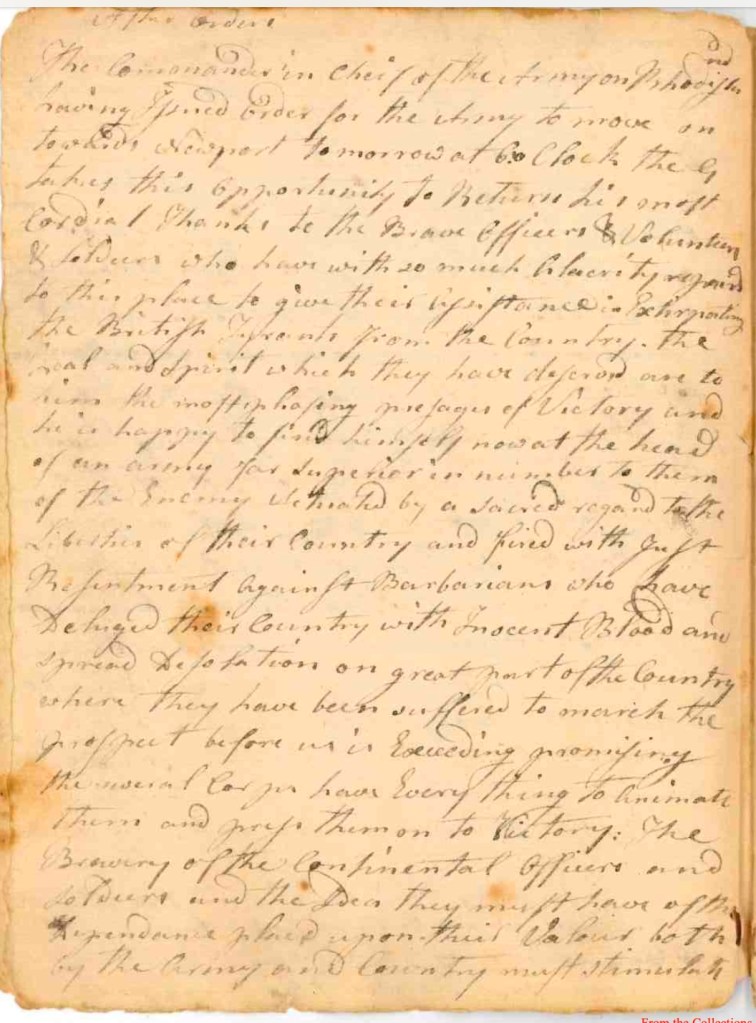 After Orders
The Comonander in Cheif of the Army on Rhodisld
having Issued order for the Army to move on
towards Newport tomorrow at 6 o Clock the G
takes this opportunity to Return his most
Cordial Thanks to the Brave Officers & Volunteers
& Soldiers who have with so much Alacrity repaird
to this place to give their Assistance in Exterpating
the British Tyrants from the Country. The
Zeal and Spirit which they have discovrd are to
him the most pleasing presages of Victory and
he is happy to find himself now at the head
of an army far superior in number to them
of the Enemy Actuated by a Sacred regard to the
Liberties of their Country and fired with Just
Resentment Against Barbarians who have
Deluged their Country with Inocent Blood and
spread Desolation on great part of the Country
where they have been suffered to march the
prospect before us is Exceeding promising
the several Corps have Every thing to animate
them and press them on to Victory: The
Bravery of the Continental Officers and
Soldiers and the Idea they must have of the
Dependance placed upon their Valour both
by the Army and Country must stimulate
From the Collections